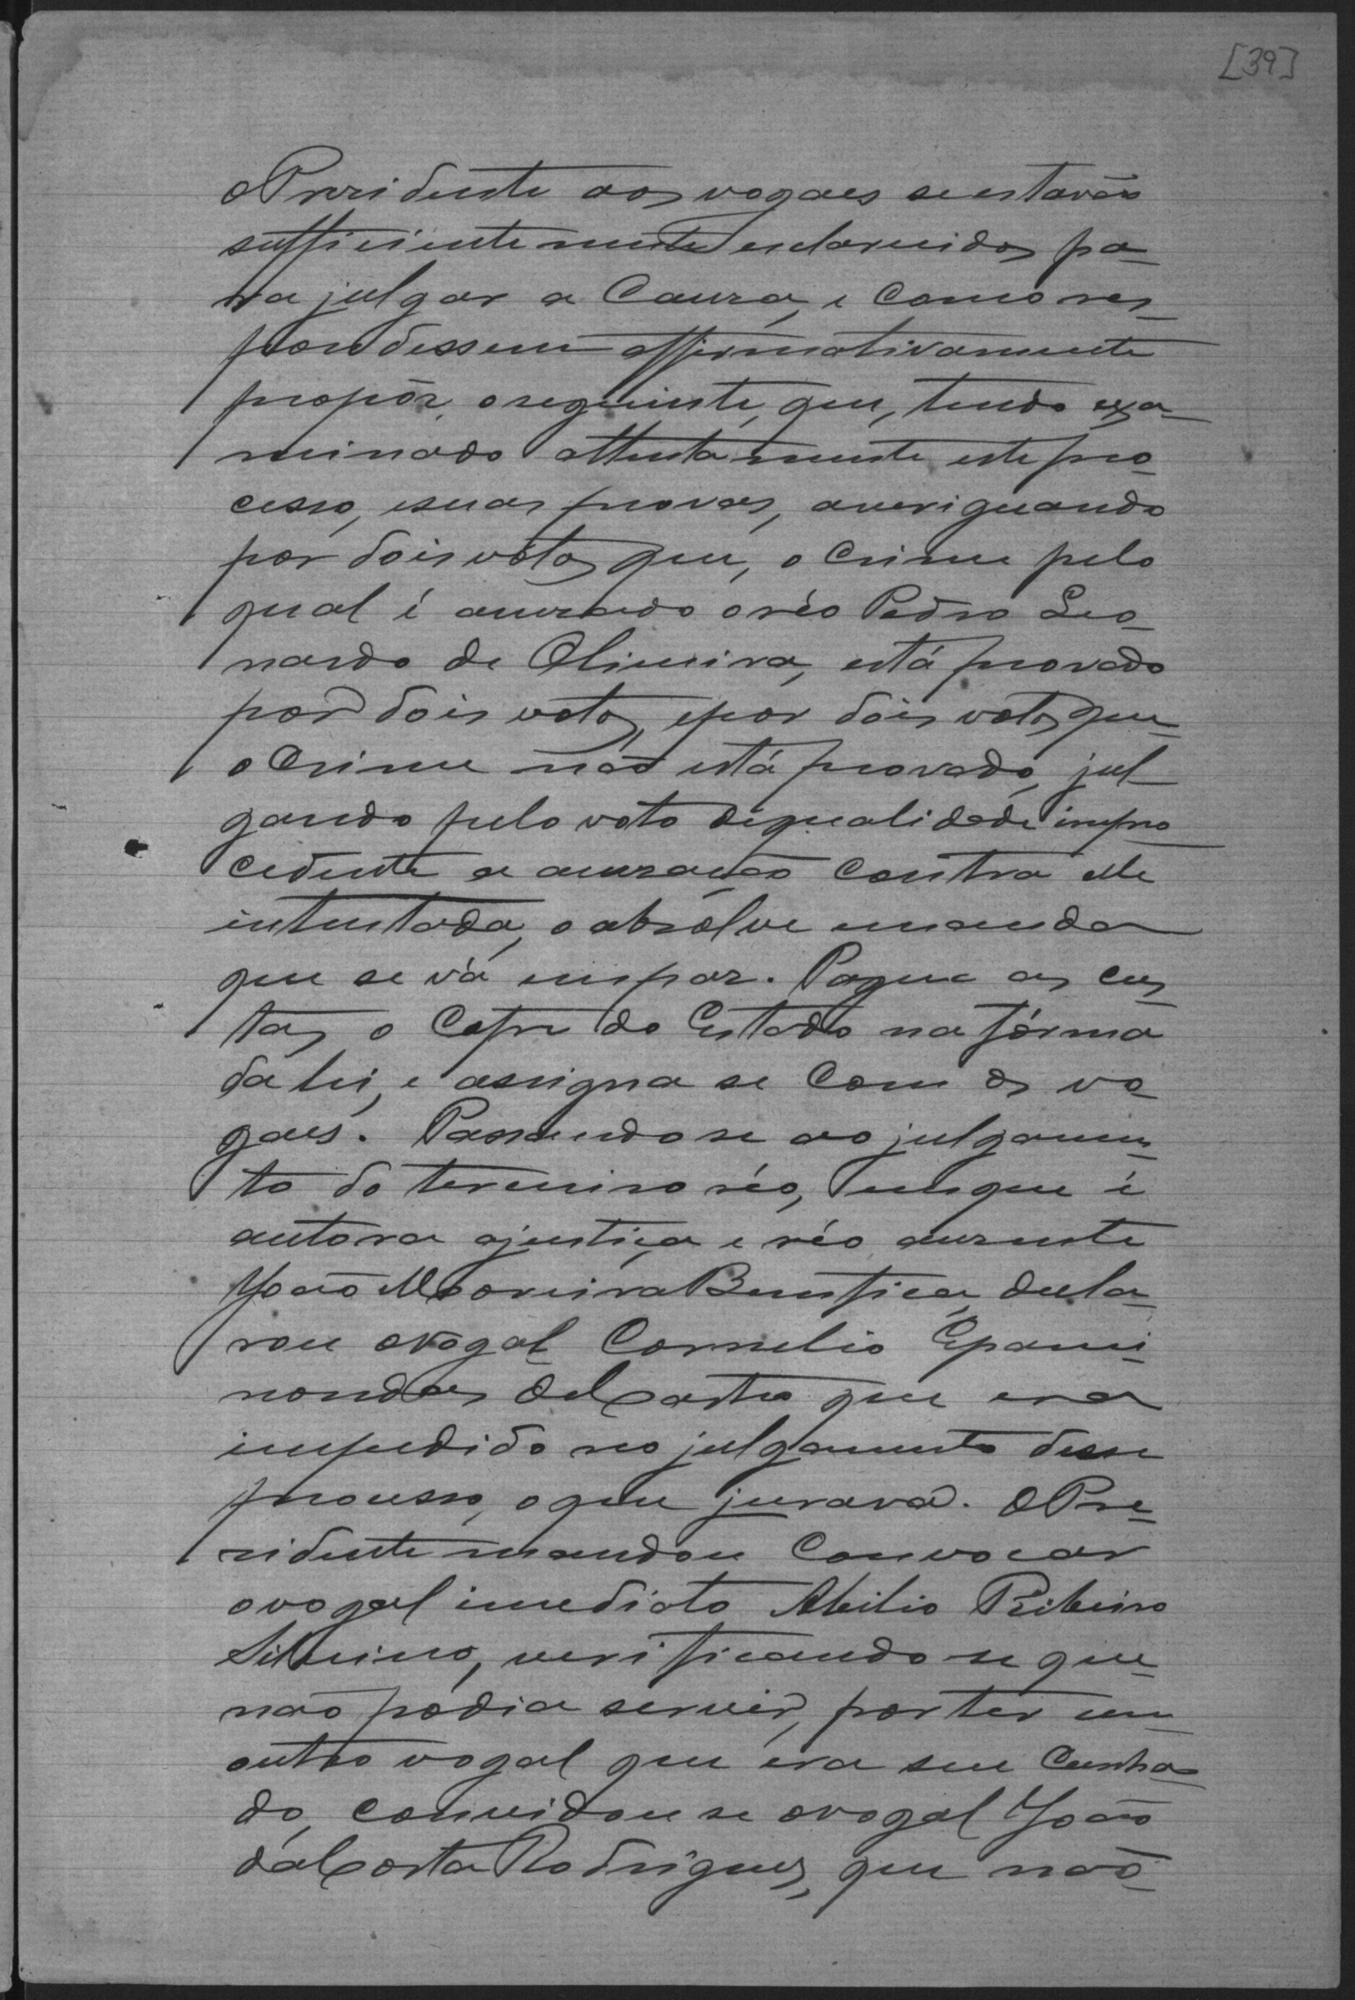 [39]
o Prezidente aos vogaes se estavão
sufficientemente esclarecidos pa-
ra julgar a Cauza, e como res-
pondessem affirmativamente
propôz o seguinte, que, tendo exa-
minado attentamente este pro-
cesso, e suas provas, averiguando
por dois votos que, o crime pelo
qual é accuzado o réo Pedro Leo-
nardo de Oliveira, está provado
por dois votos, e por dois votos que
o crime não está provado, jul-
gando pelo voto de qualidade impro
cedente a accuzação contra elle
intentada, o absolve e manda
que se vá em paz. Pague as cus-
tas o Cofre do Estado na fórma
da lei, e assigna se com os vo-
gaes. Passando se ao julgamen-
to do terceiro réo, em que é
autora a justiça e réo auzente
João Moreira Bemfica, decla-
rou o vogal Cornelio Epami-
nondas de Castro que era
impedido no julgamento desse
processo, o que jurava. O Pre-
zidente mandou Convocar
o vogal imediato Abilio Ribeiro
Silvino, verificando se que
não podia servir, por ter um
outro vogal que era seu Cunha-
do, convidou se o vogal João
da Costa Rodrigues, que não